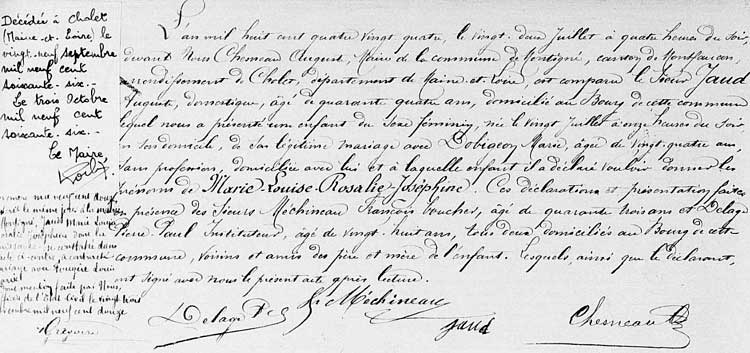 Décédée à Cholet
(Maine-et-Loire) le
vingt-neuf septembre
mil neuf cent
soixante-six.-
Le trois Octobre
mil neuf cent
soixante-six.-
Le Maire,
mil neuf cent douze
Jaud Marie Louise
Joséphine
mariage avec
mention faite par Nous,
de l'État Civil le vingt trois
mil neuf cent douze
Grégoire
L'an mil huit cent quatre vingt quatre, le vingt-deux Juillet à quatre heures du Soir
devant Nous Chesneau August, Maire de la commune de Montigné, canton de Montfaucon,
arrondissement de Cholet, département de Maine-et-Loire, est comparu le Sieur Jaud
August, domestique, âgé de quarante quatre ans, domicilié au Bourg de cette commune
lequel nous a présenté un enfant du Sexe féminin, née le vingt Juillet à onze heures du Soir
en son domicile, de son légitime mariage avec Bobigeon Marie, âgée de vingt-quatre ans,
sans profession, domiciliée avec lui et à laquelle enfant il a déclaré vouloir donner les
prénoms de Marie-Louise-Rosalie-Joséphine. Ces déclarations et présentation faites
en présence des Sieurs Méchineau François boucher, âgé de quarante trois ans et Delage
Pierre Paul Instituteur, âgé de vingt-huit ans, tous deux domiciliés au Bourg de cette
commune, voisins et amis des père et mère de l'enfant. Lesquels, ainsi que le déclarant,
ont signé avec nous le présent acte après lecture.
Delage
Méchineau
Jaud
Chesneau